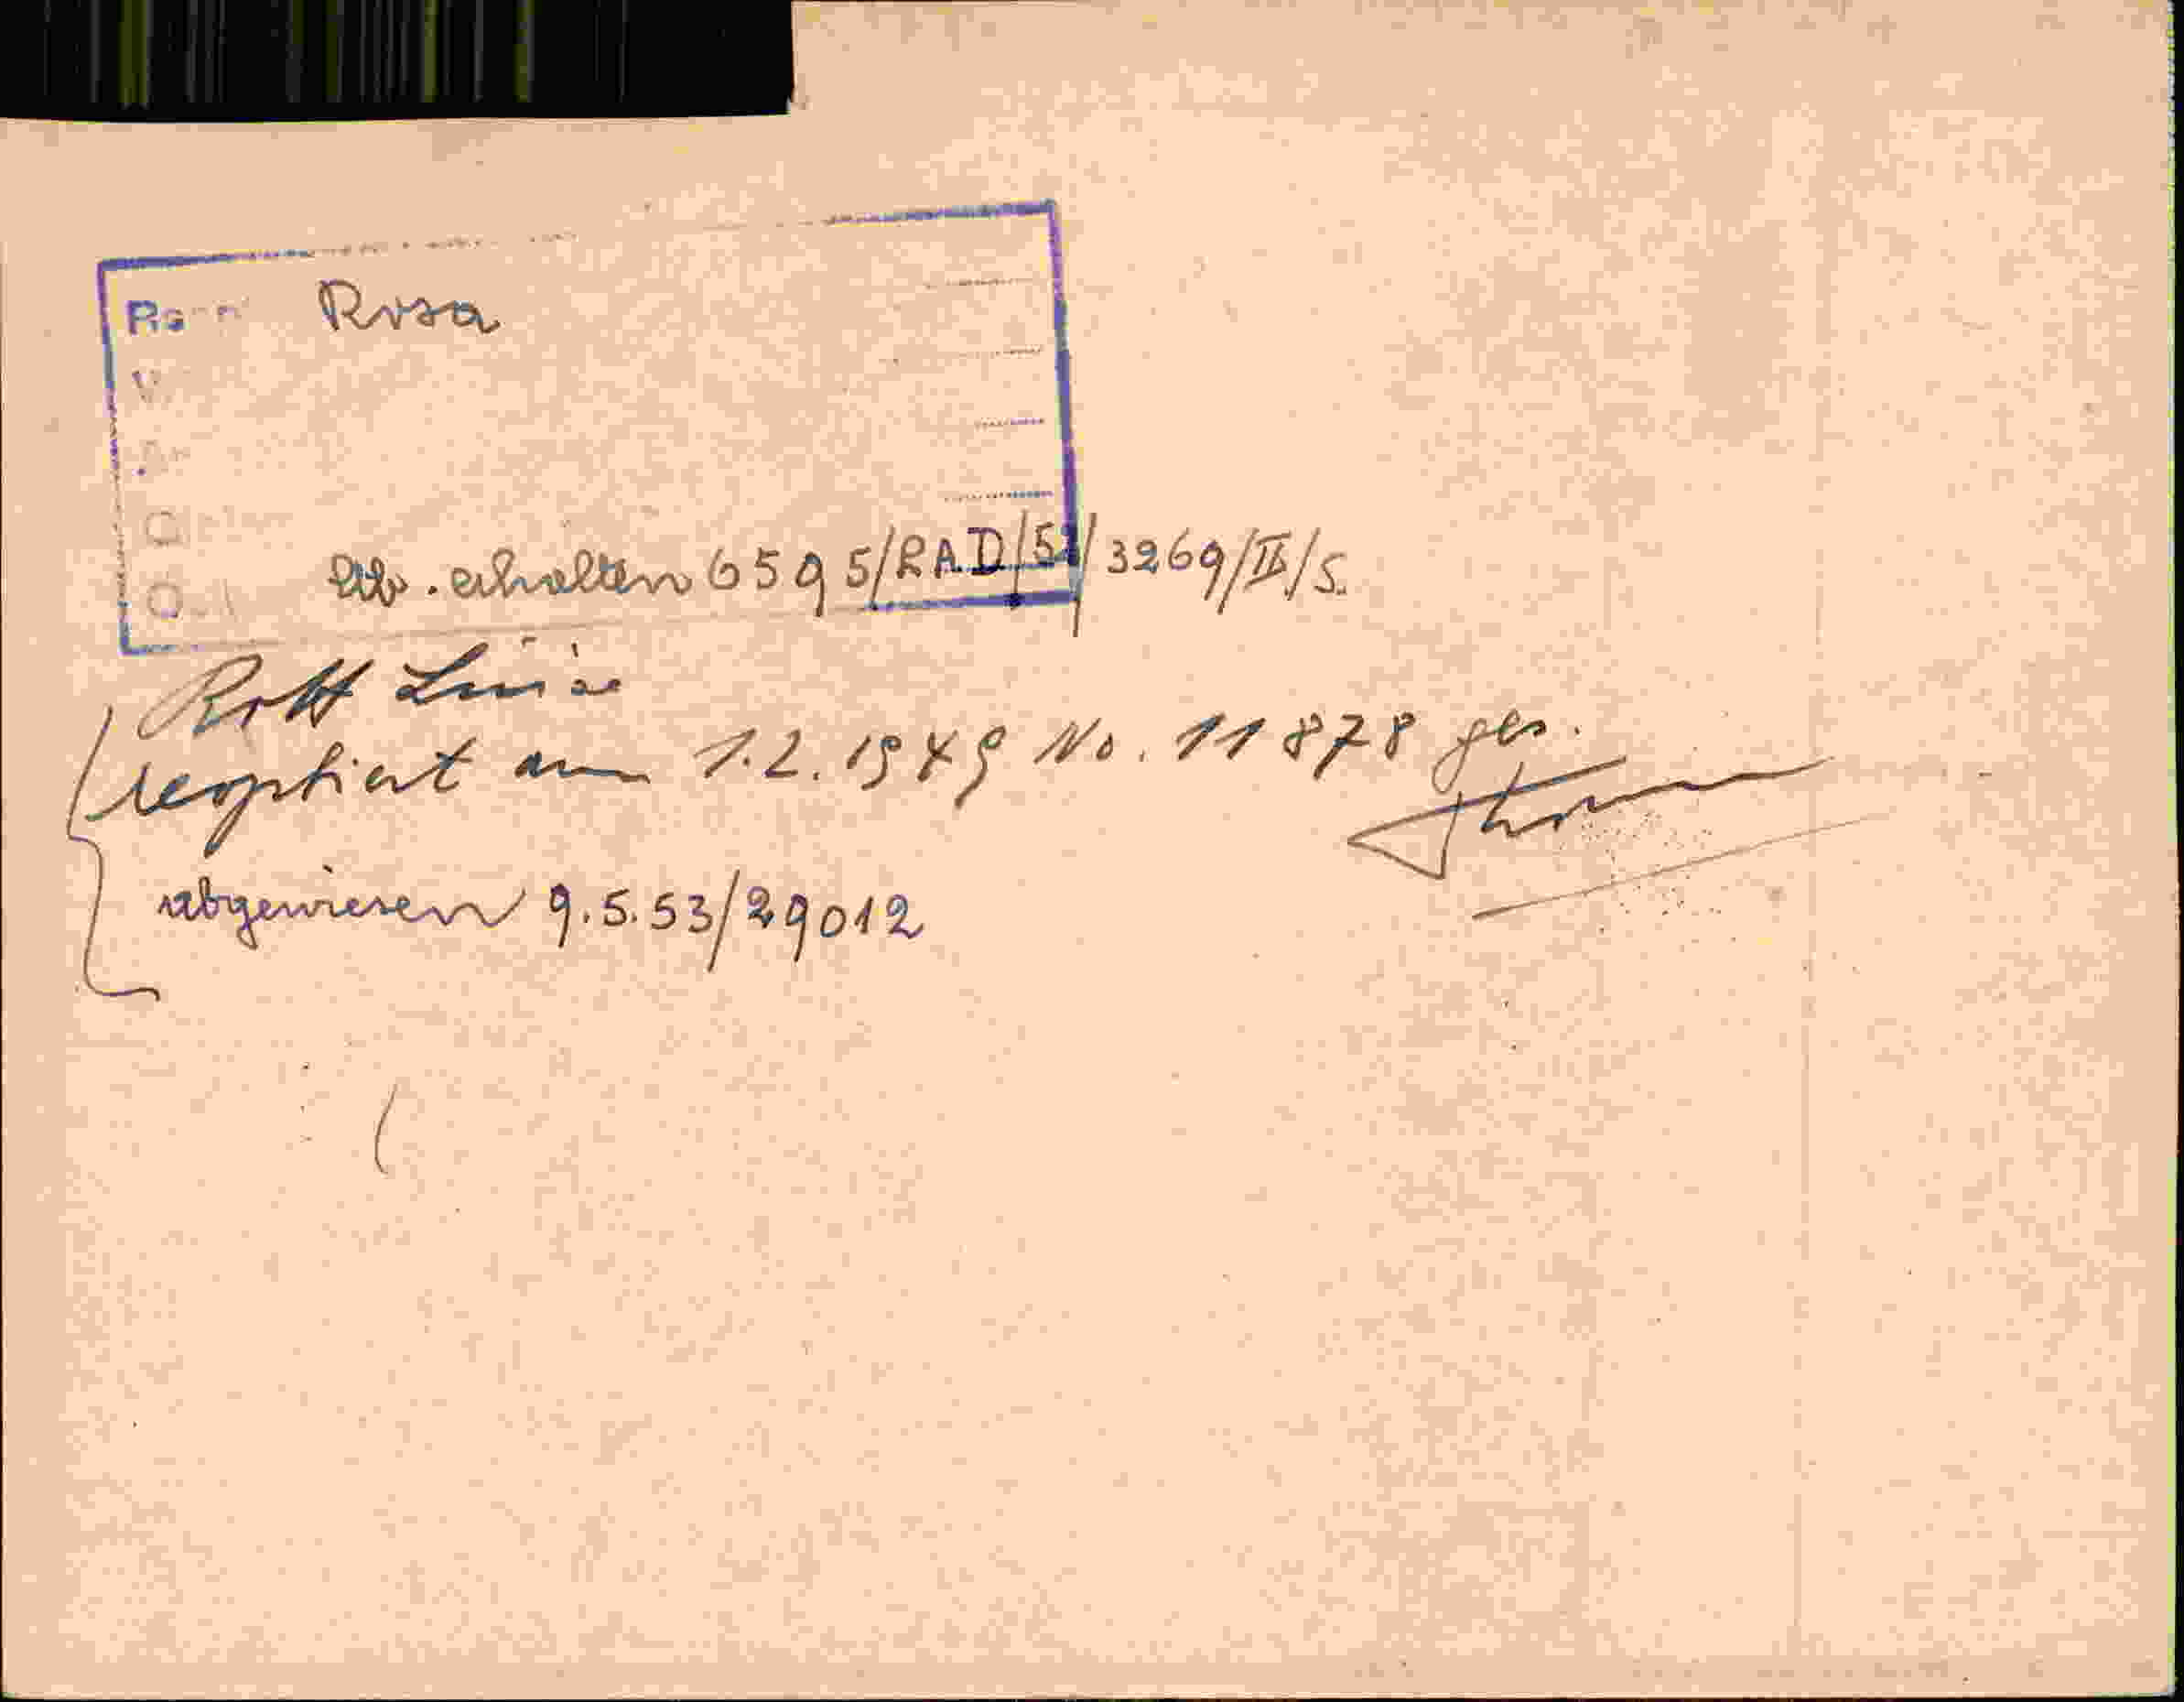 Rosa
erhalten 6595/RAD/51/3269/II/S.
Rott Luise
reoptiert am 1.2.1949 No. 11878 ges.
abgewiesen 9.5.53/29012